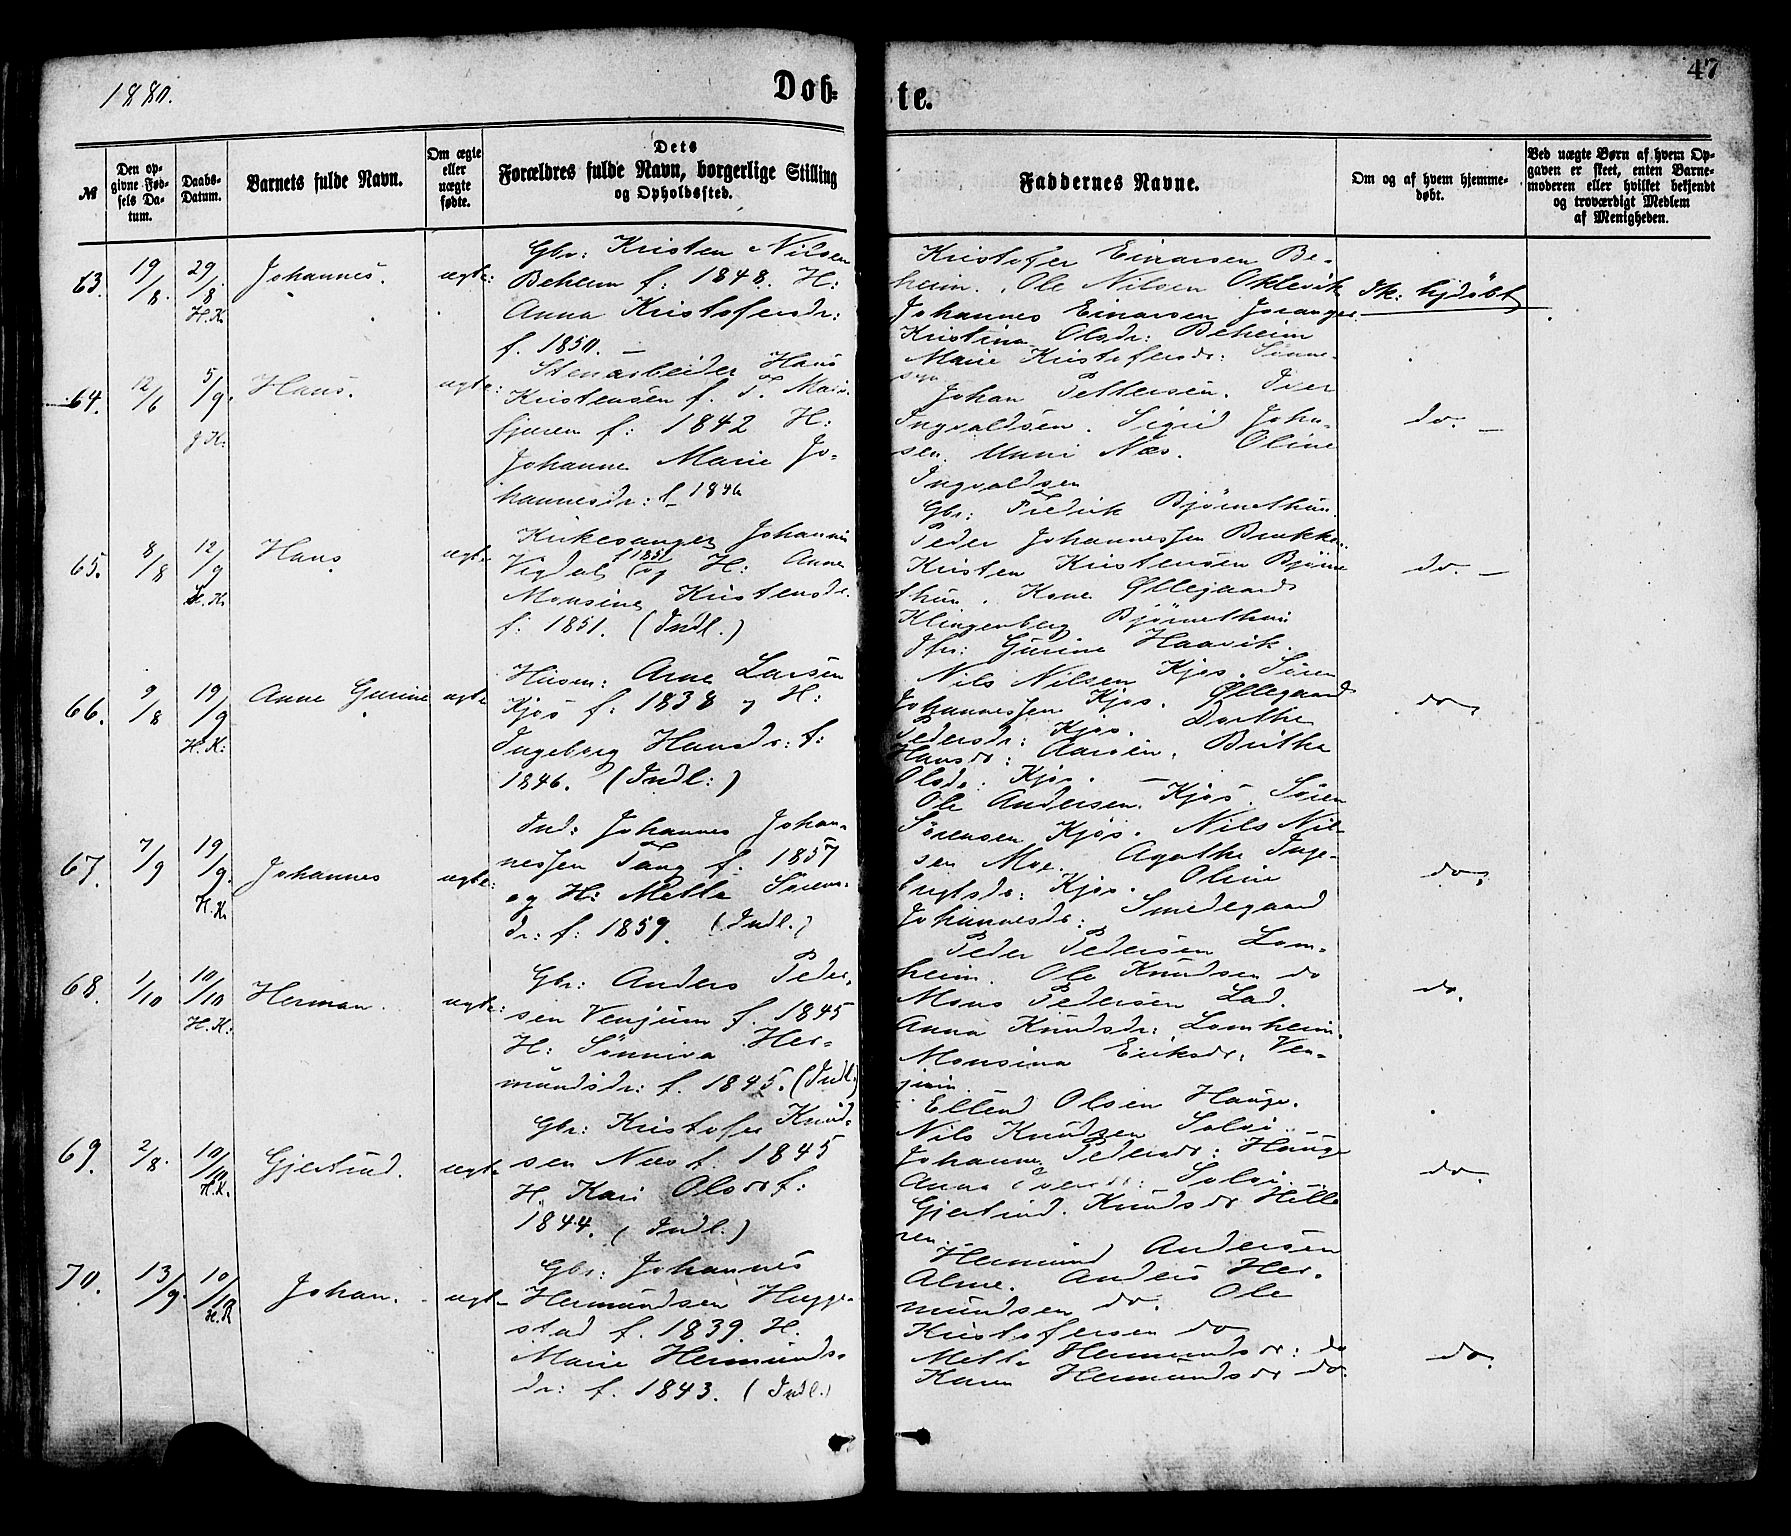 1880.
Døb-
te.
47
№
Den op-
givne Fød-
sels Da-
tum.
Daabs-
Datum.
Barnets fulde Navn.
Om ægte
eller
uægte
fødte.
Dets
Forældres fulde Navn, borgerlige Stilling
og Opholdssted.
Faddernes Navne.
Om og af hvem hjemme-
døbt.
Ved uægte Børn af hvem Op-
gaven er skeet, enten Barne-
moderen eller hvilket bekjendt
og troværdigt Medlem
af Menigheden.
63. 19/8. 29/8 H.K. Johannes. ægte:
Gbr: Kristen Nilsen
Beheim f: 1848. H:
Anna Kristofersdr:
f. 1850. —
Kristofer Einarsen Be-
heim. Ole Nilsen Oklevik
Johannes Einarsen Joranger
Kristina Olsdr: Beheim
Marie Kristofersdr: Sønne-
hjdøbt
64. 12/6 5/9. Hans. ægte:
Stenarbeider Hans
Kristensen f. T. Mari-
fjæren f: 1842 H:
Johanne Marie Jo-
hannesdr: f. 1846
Johan Pettersen. Iver
Ingvaldsen. Sigrid John-
sen. Unni Næs. Oline
Ingvaldsen
do. —
65. 8/8 12/9 H.K. Hans ægte
Kirkesanger Johannes
Vigdal f 1851 og H: Anne
Monsine Kristensdr.
f: 1851. (Indl.)
Gbr: Fredrik Bjørnethun.
Peder Johannessen
Kristen Kristensen Bjørne
thun. Kone Øllegaard
Klingenberg Bjørnethun
Gurine Haavik.
do. —
66. 9/8 19/9 H.K: Anne Gurine ægte
Husm: Arne Larsen
Kjøs f: 1838 og H:
Ingeborg Hansdr: f:
1846. (Indl:)
Nils Nilsen Kjøs. Søren
Johannessen Kjøs. Øllegaard
Pedersdr: Kjøs. Dorthe
Hansdr: Aasen. Brithe
Olsdr. Kjøs. —
do,
67. 7/9 19/9. H.K. Johannes ægte:
Ind: Johannes Johan-
nessen Tang f: 1857
og H: Mette Sørens-
dr: f: 1859. (Indl.)
Ole Andersen. Kjøs. Søren
Sørensen Kjøs. Nils Nil-
sen Moe. Agathe Inge-
brigtsdr: Kjøs. Oline
Johannesdr: Smedegaard
do,
68. 1/10 10/10 H.K: Herman. ægte:
Gbr: Anders Peder-
sen Venjum f. 1845
H: Sønniva Her-
mundsdr: f. 1845. (Indl.)
Peder Pedersen Lom-
heim. Ole Knudsen do
Mons Pedersen Lad.
Anna Knudsdr: Lomheim.
Monsina Eriksdr: Ven-
jum.
do.
69. 2/8. 10/10 H.K. Gjertrud. ægte
Gbr: Kristofer Knud-
sen Næs f. 1845
H. Kari Olsdr f:
1844. (Indl.)
Ellend Olsen Hauge.
Nils Knudsen Solvi.
Johanne Pedersdr: Hauge
Anna Solvi.
Gjertrud. Knudsdr Hille
ren.
do.
70. 13/9. 10/10 H.K Johan. ægte
Gbr: Johannes
Hermundsen Hegge-
stad f. 1839. H.
Marie Hermunds-
dr: f. 1843. (Indl.)
Hermund Andersen
Alme. Anders Her-
mundsen do. Ole
Kristofersen do
Mette Hermundsdr: do
Karen Hermundsdr do.
do.